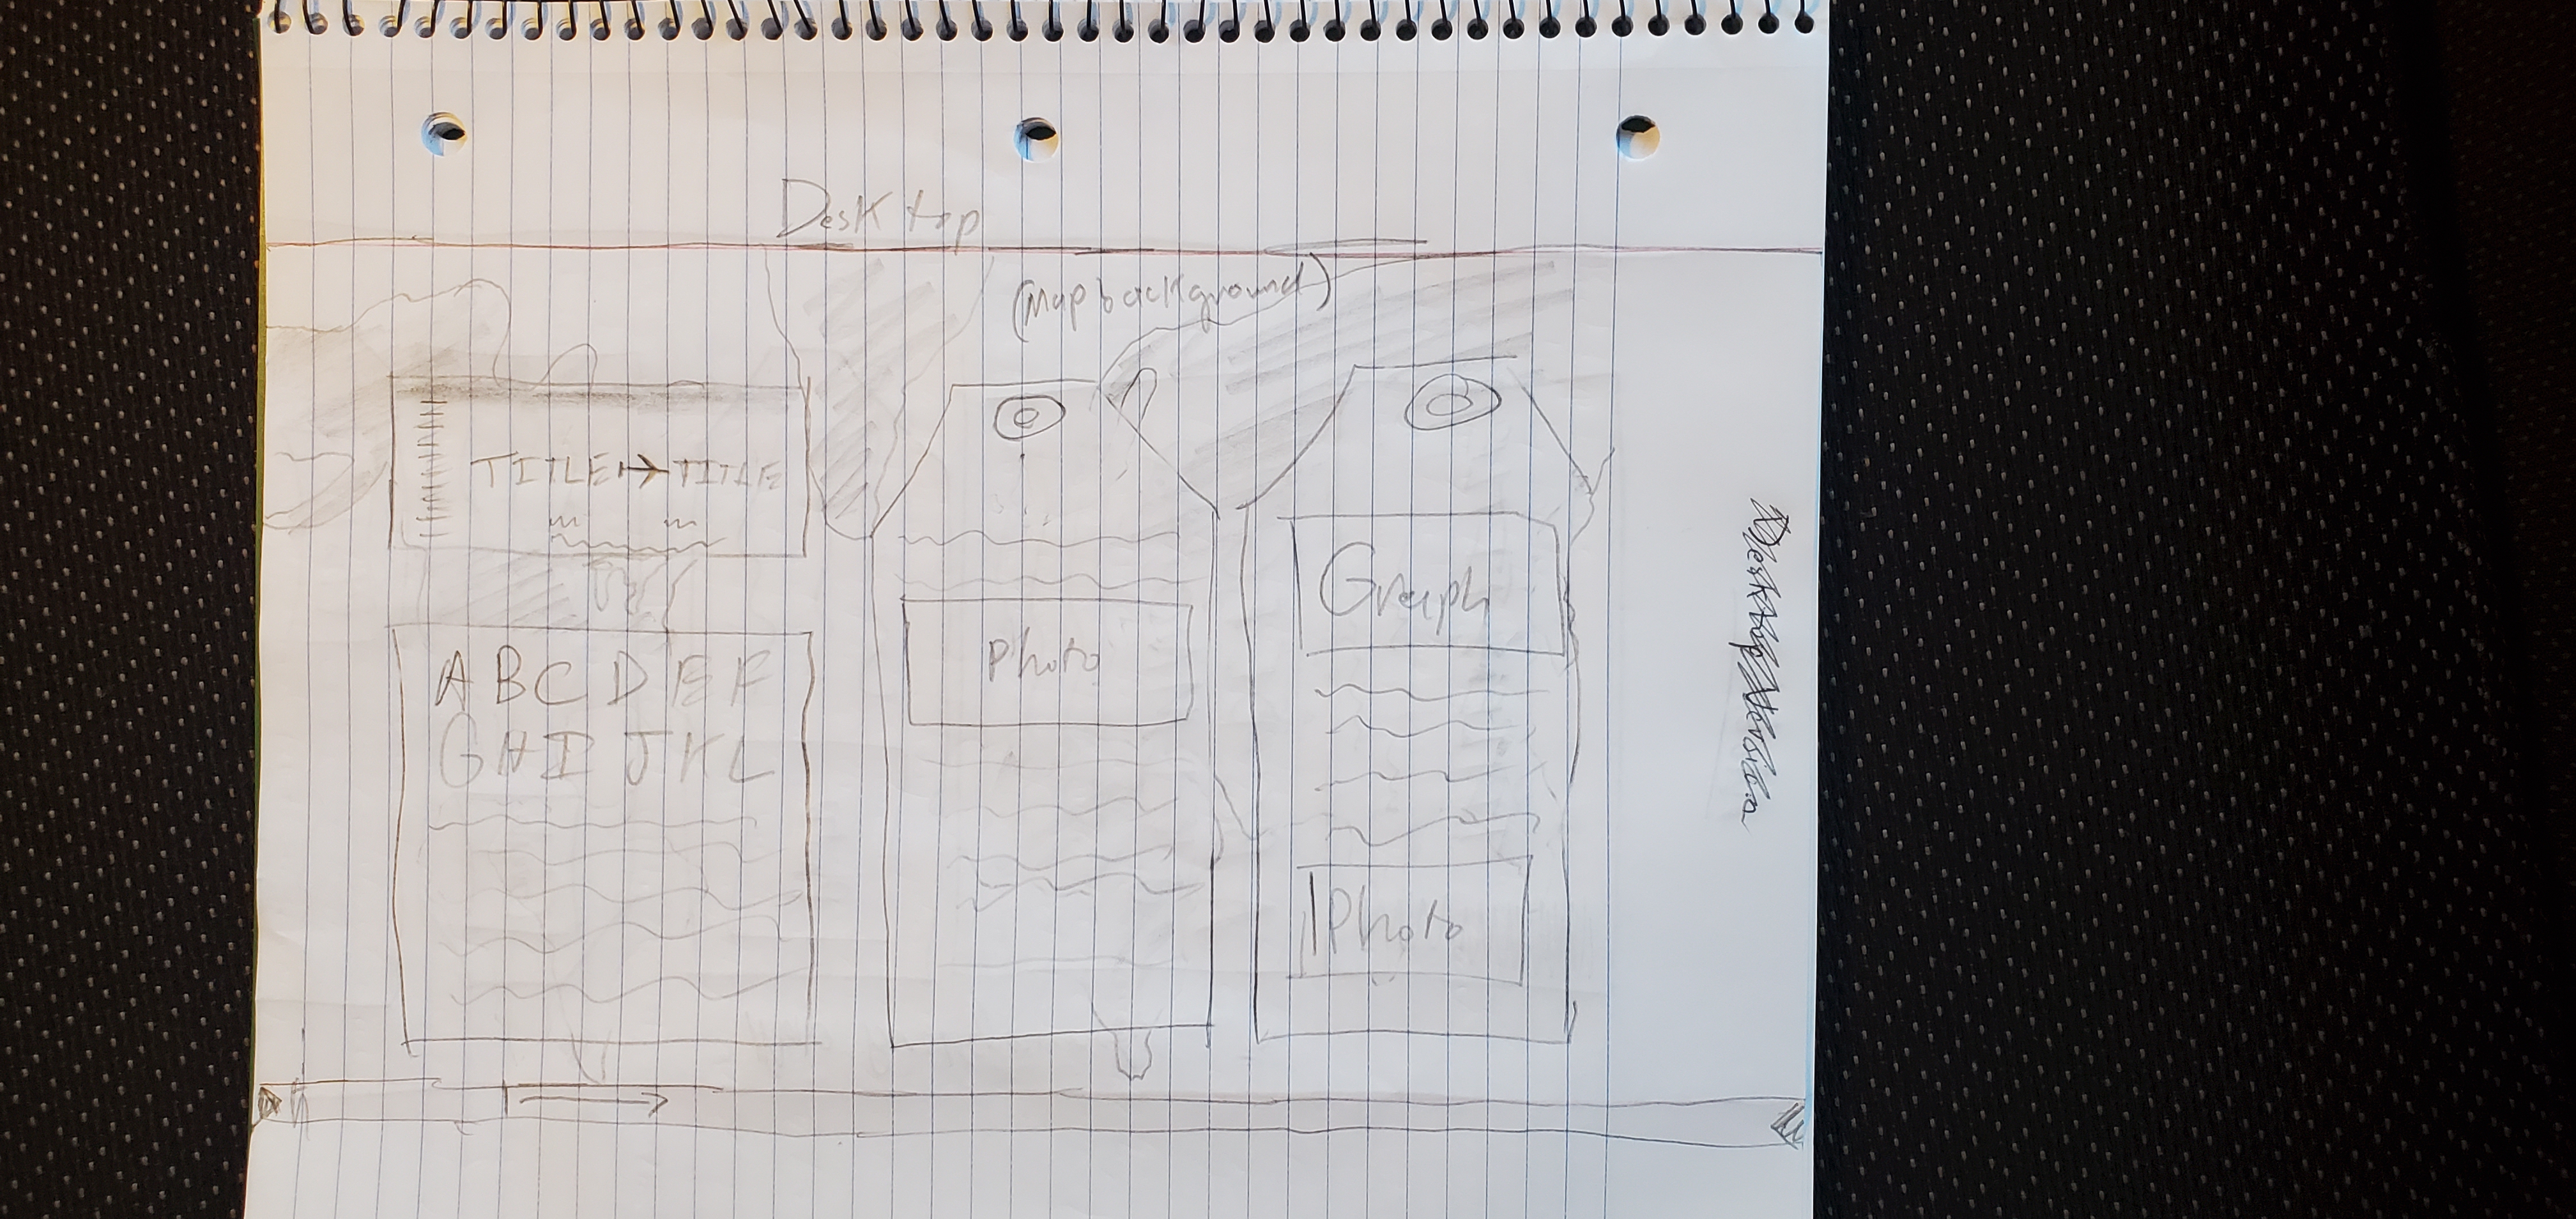 Desktop
(Map background)
TITLE → TITLE
A B C D E F
G H I J K L
Photo
Graph
Photo